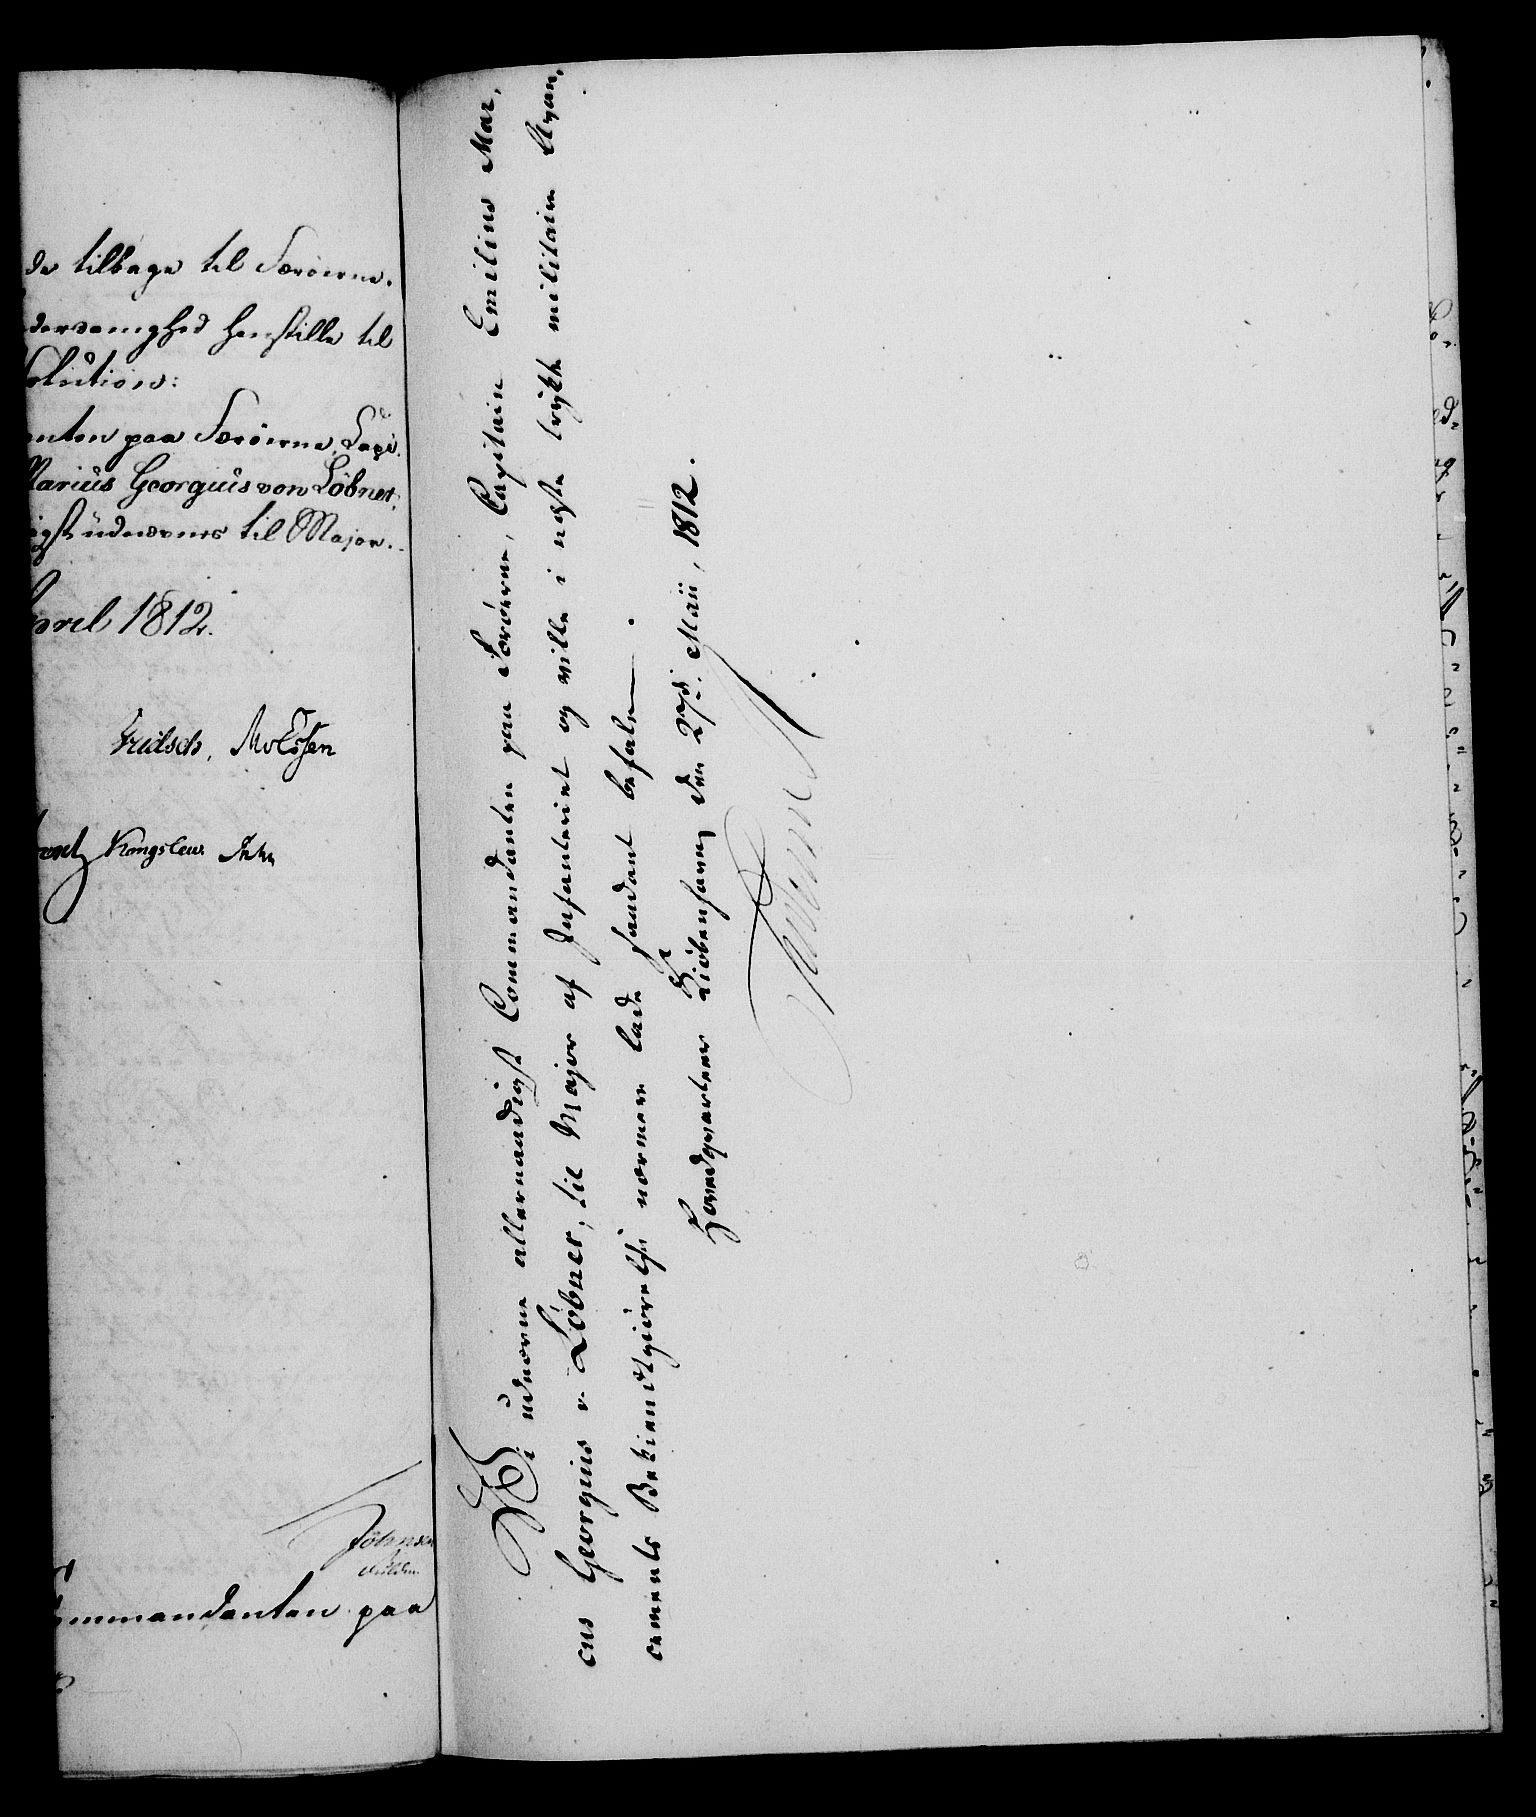 de tilbage til Færöerne.
derdanighed henstille til
solution:
anten paa Færöerne, Capi-
Marius Georgius von Löbner,
igst udnævnes til Major.
April 1812.
Fritsch, MvEssen
Kongslew
Johnsen
Commandanten paa
Vi udnævne allernaadigst Commandanten paa Færöerne, Capitain Emilius Mar,
cus Georgius v. Löbner, til Major af Infanteriet og ville i næste trykte militaire Avan,
cements Bekiendtgiörelse nærmere lade saadant befale.
Hovedqvarteer Kiöbenhavn, den 27de Maii, 1812.